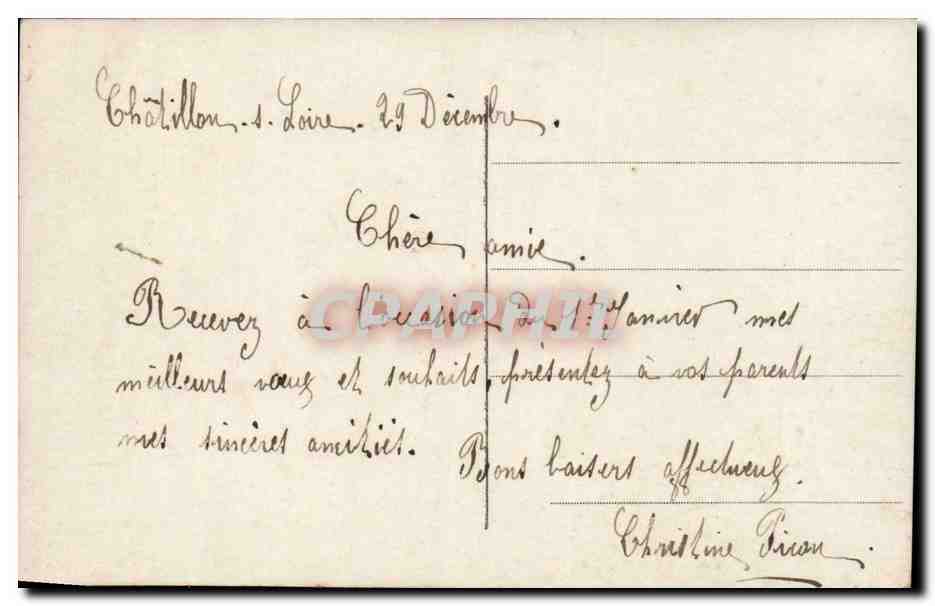 Châtillon-s-Loire-29 Décembre.
Chère amie.
Recevez à l'occasion du 1er Janvier mes
meilleurs vœux et souhaits, présentez à vos parents
mes sincères amitiés.
Bons baisers affectueux.
Christine Picou.
CPAPHIL